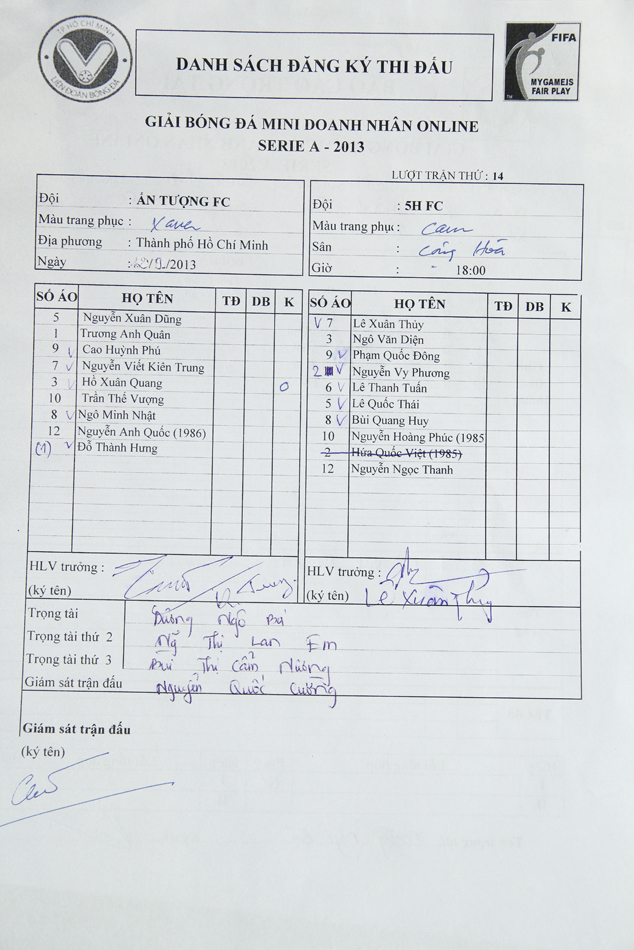 TP HỒ CHÍ MINH
LIÊN ĐOÀN BÓNG ĐÁ
DANH SÁCH ĐĂNG KÝ THI ĐẤU
FIFA
MYGAMEIS
FAIR PLAY
GIẢI BÓNG ĐÁ MINI DOANH NHÂN ONLINE
SERIE A - 2013
LƯỢT TRẬN THỨ : 14
Đội : ẤN TƯỢNG FC
Màu trang phục : Xanh
Địa phương : Thành phố Hồ Chí Minh
Ngày : /2013
Đội : 5H FC
Màu trang phục : Cam
Sân : Cộng Hòa
Giờ : 18:00
SỐ ÁO HỌ TÊN TĐ DB K
5 Nguyễn Xuân Dũng
1 Trương Anh Quân
9 V Cao Huỳnh Phú
7 V Nguyễn Viết Kiên Trung
3 V Hồ Xuân Quang O
10 Trần Thế Vượng
8 V Ngô Minh Nhật
12 Nguyễn Anh Quốc (1986)
(1) V Đỗ Thành Hưng
HLV trưởng :
(ký tên) Trung
SỐ ÁO HỌ TÊN TĐ DB K
V 7 Lê Xuân Thủy
3 Ngô Văn Diện
9 V Phạm Quốc Đông
2 V Nguyễn Vy Phương
6 V Lê Thanh Tuấn
5 V Lê Quốc Thái
8 V Bùi Quang Huy
10 Nguyễn Hoàng Phúc (1985
2 Hứa Quốc Việt (1985)
12 Nguyễn Ngọc Thanh
HLV trưởng :
(ký tên) Lê Xuân Thủy
Trọng tài Dương Ngô Bá
Trọng tài thứ 2 Thị Lan Em
Trọng tài thứ 3 Bùi Thị Cẩm Nường
Giám sát trận đấu Nguyễn Quốc Cường
Giám sát trận đấu
(ký tên)